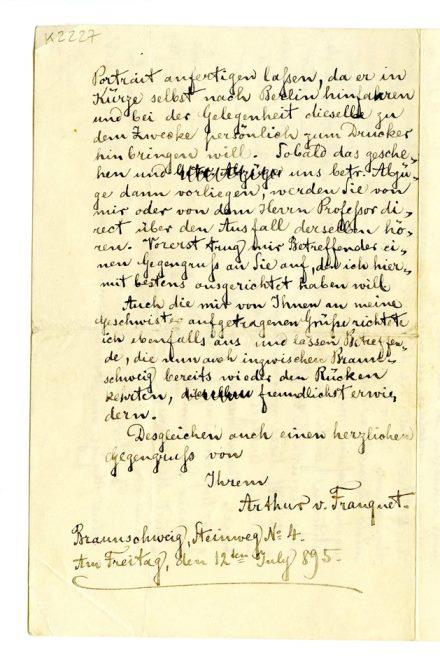 K2227
Portrait anfertigen laßen, da er in
Kürze selbst nach Berlin hinfahren
und bei der Gelegenheit dieselbe zu
dem Zwecke persönlich zum Drucker
hinbringen will. Sobald das gesche-
hen und uns betr. Abzü-
ge dann vorliegen, werden Sie von
mir oder von dem Herrn Profeßor di-
rect über den Ausfall derselben hö-
ren. Vorerst trug mir Betreffender ei-
nen Gegengruß an Sie auf, den ich hier-
mit bestens ausgerichtet haben will.
Auch die mir von Ihnen an meine
Geschwister aufgetragenen Grüße richtete
ich ebenfalls aus und laßen Betreffen-
de, die nun auch inzwischen Braun-
schweig bereits wieder den Rücken
kehrten, freundlichst erwie-
dern.
Desgleichen auch einen herzlichen
Gegengruß von
Ihrem
Arthur v. Franquet.
Braunschweig, Steinweg No 4.
Am Freitag, den 12ten July 895.